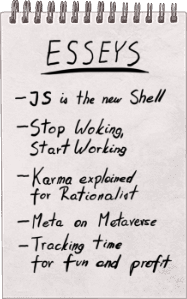 ESSEYS
- JS is the new Shell
- Stop Woking,
Start Working
- Karma explained
for Rationalist
- Meta on Metaverse
- Tracking time
for fun and profit